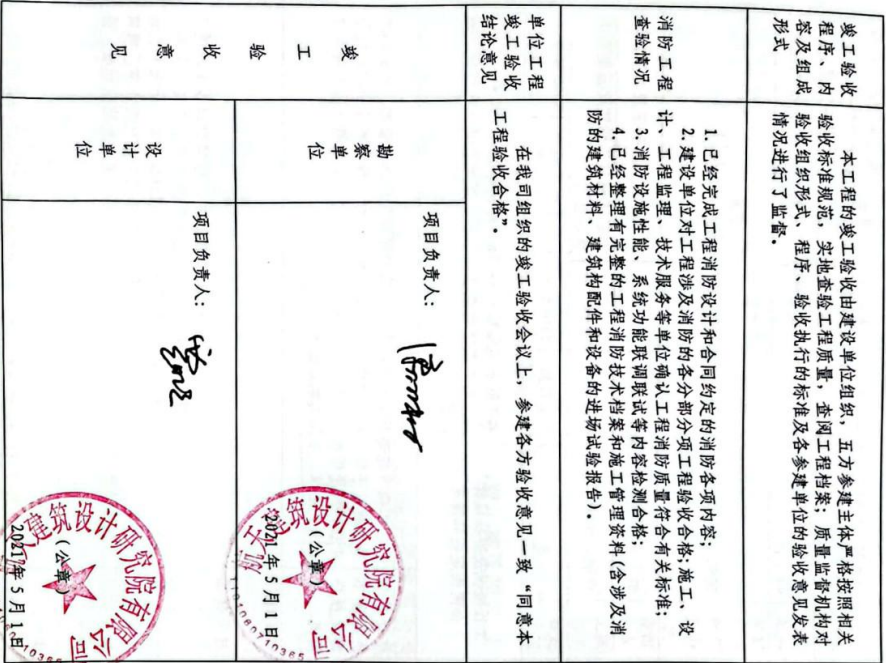 竣工验收
程序、内
容及组成
形式
本工程的竣工验收由建设单位组织，五方参建主体严格按照相关
验收标准规范，实地查验工程质量，查阅工程档案；质量监督机构对
验收组织形式、程序、验收执行的标准及各参建单位的验收意见发表
情况进行了监督。
消防工程
查验情况
1.已经完成工程消防设计和合同约定的消防各项内容；
2.建设单位对工程涉及消防的各分部分项工程验收合格；施工、设
计、工程监理、技术服务等单位确认工程消防质量符合有关标准；
3.消防设施性能、系统功能联调联试等内容检测合格；
4.已经整理有完整的工程消防技术档案和施工管理资料（含涉及消
防的建筑材料、建筑构配件和设备的进场试验报告）。
单位工程
竣工验收
结论意见
在我司组织的竣工验收会议上，参建各方验收意见一致“同意本
工程验收合格”。
竣工验收意见
勘察单位
项目负责人：
航天建筑设计研究院有限公司
（公章）
2021年5月1日
1101080710365
设计单位
项目负责人：
天建筑设计研究院有限公司
（公章）
2021年5月1日